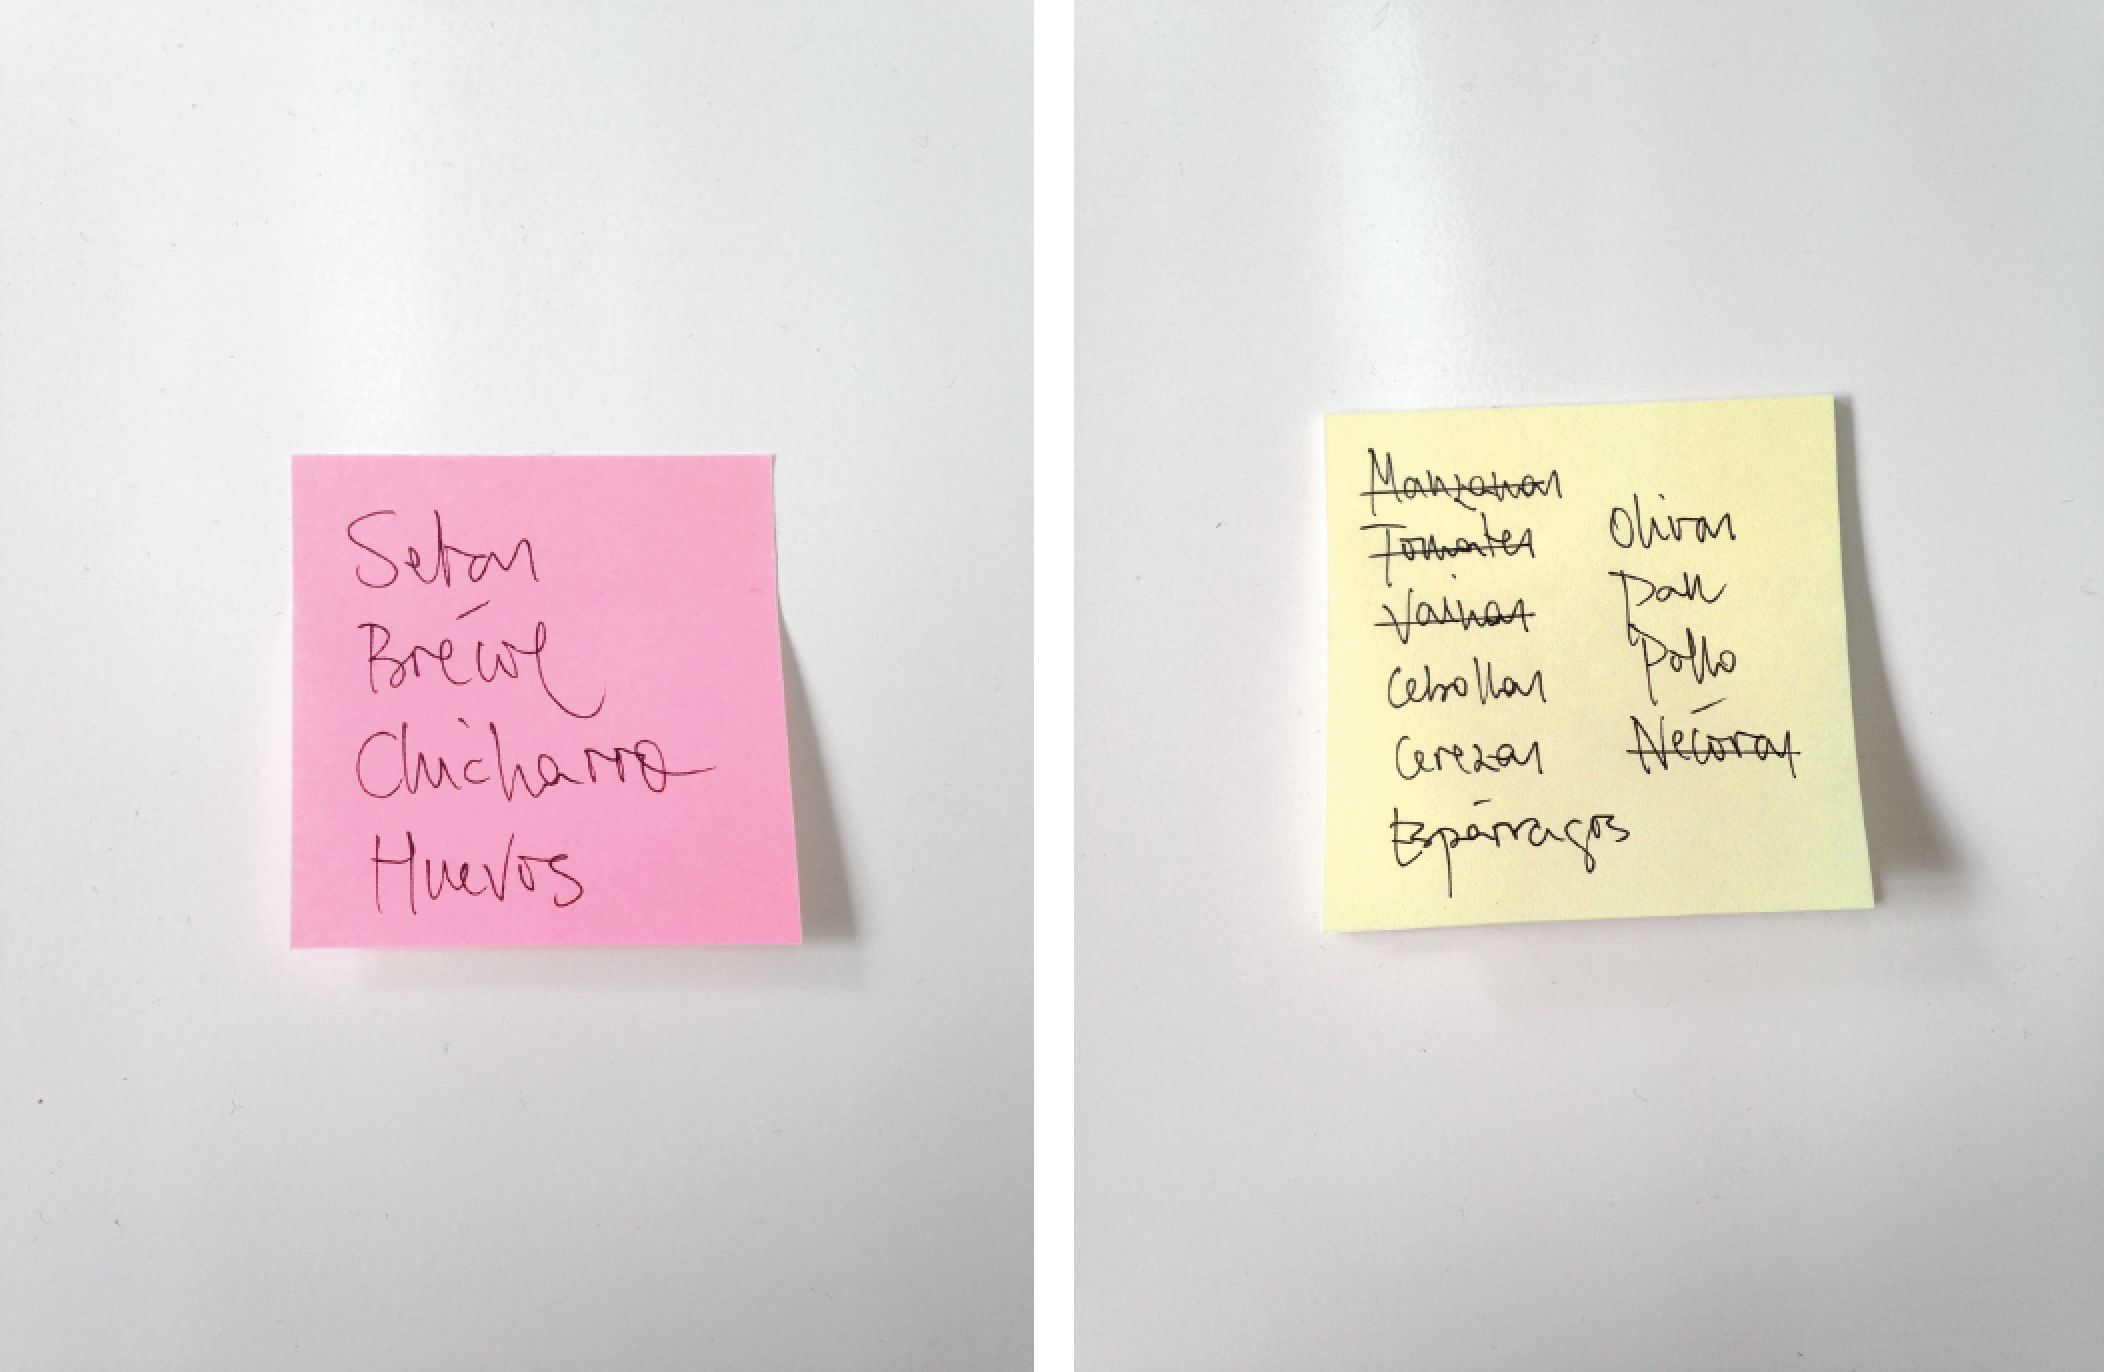 Setas
Brécol
Chicharro
Huevos
Manzanas
Tomates
Vainas
Cebollas
Cerezas
Espárragos
Olivas
Pan
Pollo
Nécoras